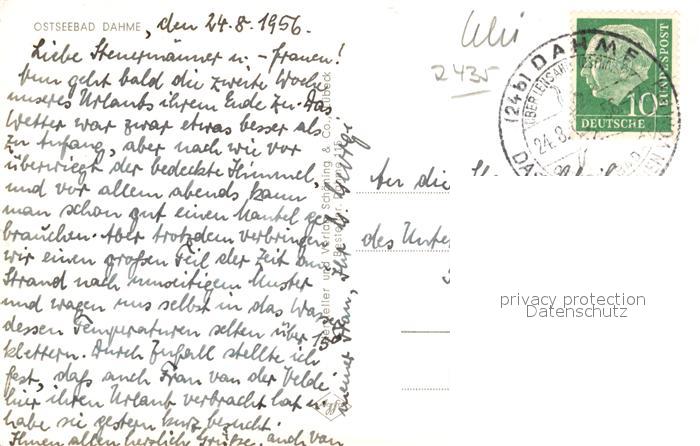 OSTSEEBAD DAHME, den 24.8.1956.
Liebe Steuermänner u. -frauen!
Nun geht bald die zweite Woche
unseres Urlaubs ihrem Ende zu. Das
Wetter war zwar etwas besser als
zu Anfang, aber nach wie vor
überwiegt der bedeckte Himmel,
und vor allem abends kann
man schon gut einen Mantel ge
brauchen. Aber trotzdem verbringen
wir einen großen Teil der Zeit am
Strand nach umseitigem Muster
und wagen uns selbst in das Wasser
dessen Temperaturen selten über 15°
klettern. Durch Zufall stellte ich
fest, daß auch Frau van der Velde
hier ihren Urlaub verbracht hat u.
habe sie gestern kurz besucht.
Ihnen allen herzlich Grüße, auch von
meiner Frau, Ihr
Hersteller und Verlag Schöning & Co., Lübeck
R 2435
(24b) DAHME
24.8.
10
DEUTSCHE
BUNDESPOST
An die
des Unter
privacy protection
Datenschutz